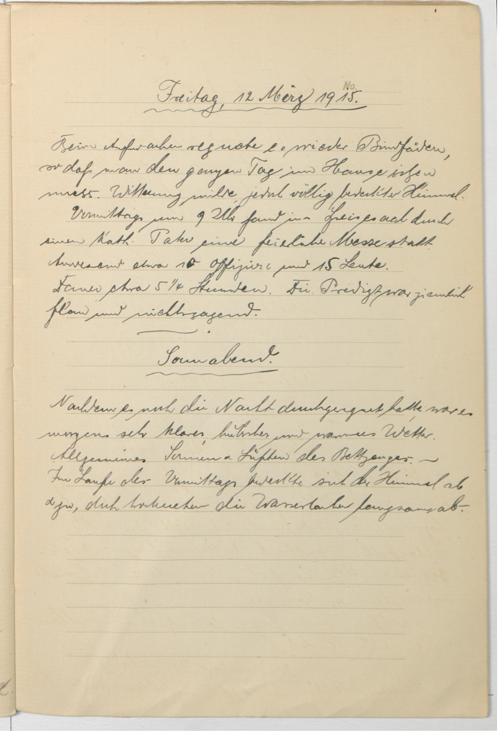 Freitag, 12 März 1915.
Beim Aufwachen regnete es wieder Bindfäden,
so daß man den ganzen Tag im Hause sitzen
muss. Witterung milde, jedoch völlig bedeckter Himmel.
Vormittags um 9 Uhr fand im durch
einen Kath. Pater eine feierliche Messe statt
Anwesend etwa 10 Offiziere und 15 Leute.
Dauer etwa 5/4 Stunden. Die Predigt war ziemlich
flau und nichtssagend.
Sonnabend.
Nachdem es noch die Nacht durchgeregnet hatte war es
morgens sehr klares, und warmes Wetter.
Allgemeines Sonnen & Lüften des Bettzeuges. –
Im Laufe des Vormittags bedeckte sich der Himmel ab
& zu, doch die Wasserlachen langsam ab.